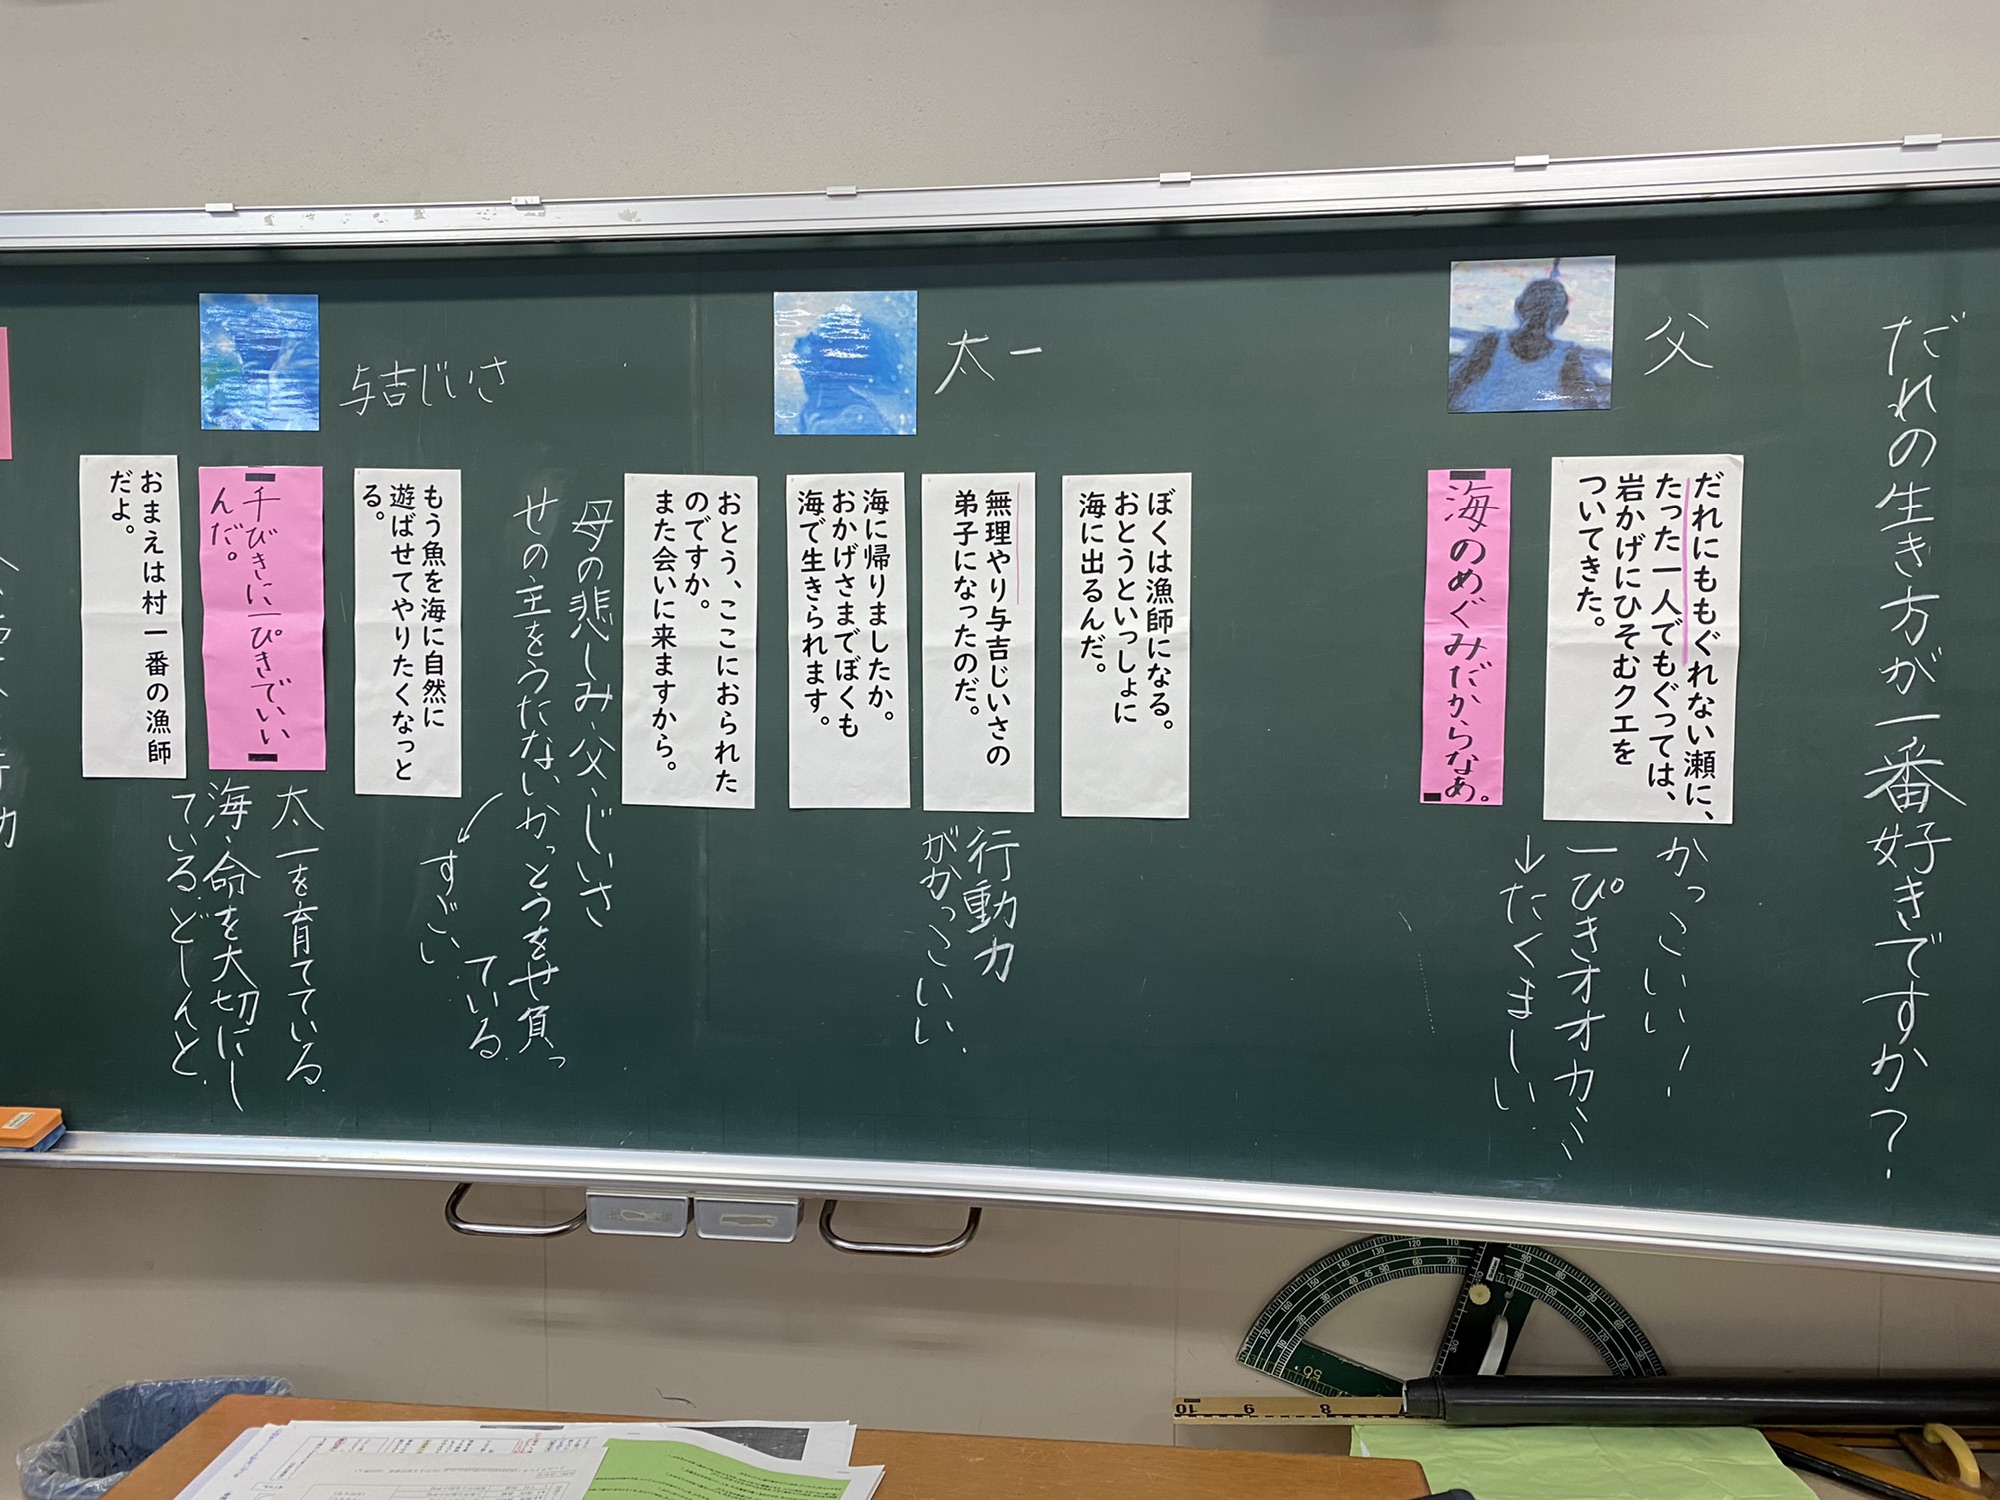 だれの生き方が一番好きですか?
父
だれにももぐれない瀬に、
たった一人でもぐっては、
岩かげにひそむクエを
ついてきた。
かっこいい!
一ぴきオオカミ
↓たくましい
海のめぐみだからなあ。
太一
ぼくは漁師になる。
おとうといっしょに
海に出るんだ。
無理やり与吉じいさの
弟子になったのだ。
行動力
がかっこいい.
海に帰りましたか。
おかげさまでぼくも
海で生きられます。
おとう、ここにおられた
のですか。
また会いに来ますから。
母の悲しみ、父、じいさ
せの主をうたないかっとうをせ負っ
ている
すごい
与吉じいさ
もう魚を海に自然に
遊ばせてやりたくなっと
る。
千びきに一ぴきでいい
んだ。
太一を育てている
海・命を大切にし
ている.どしんと.
おまえは村一番の漁師
だよ。